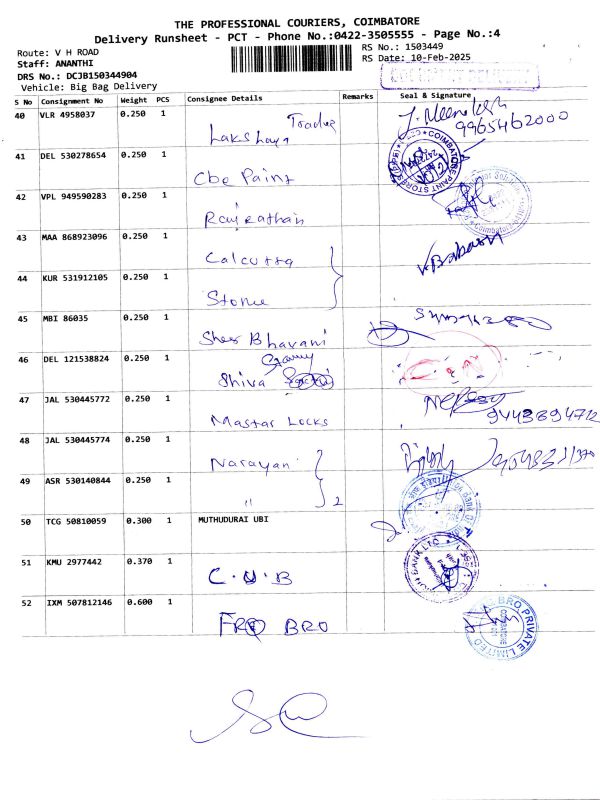 THE PROFESSIONAL COURIERS, COIMBATORE
Delivery Runsheet - PCT - Phone No.:0422-3505555 - Page No.:4
Route: V H ROAD
RS No.: 1503449
Staff: ANANTHI
RS Date: 10-Feb-2025
DRS No.: DCJB150344904
Vehicle: Big Bag Delivery
S No Consignment No Weight PCS Consignee Details Remarks Seal & Signature
40 VLR 4958037 0.250 1 Lakshaya Trades
9965462000
41 DEL 530278654 0.250 1 Cbe Paint
COIMBATORE PAINT STORES
42 VPL 949590283 0.250 1 Rajrathan
43 MAA 868923096 0.250 1 Calcutta
44 KUR 531912105 0.250 1 Stone
45 MBI 86035 0.250 1 Shee Bhavani
46 DEL 121538824 0.250 1 Shiva
47 JAL 530445772 0.250 1 Mastar Locks
9443694712
48 JAL 530445774 0.250 1 Narayani
49 ASR 530140844 0.250 1 " 2
50 TCG 50810059 0.300 1 MUTHUDURAI UBI
51 KMU 2977442 0.370 1 C.U.B
BANK LTD
52 IXM 507812146 0.600 1 BRO
BRO PRIVATE LIMITED